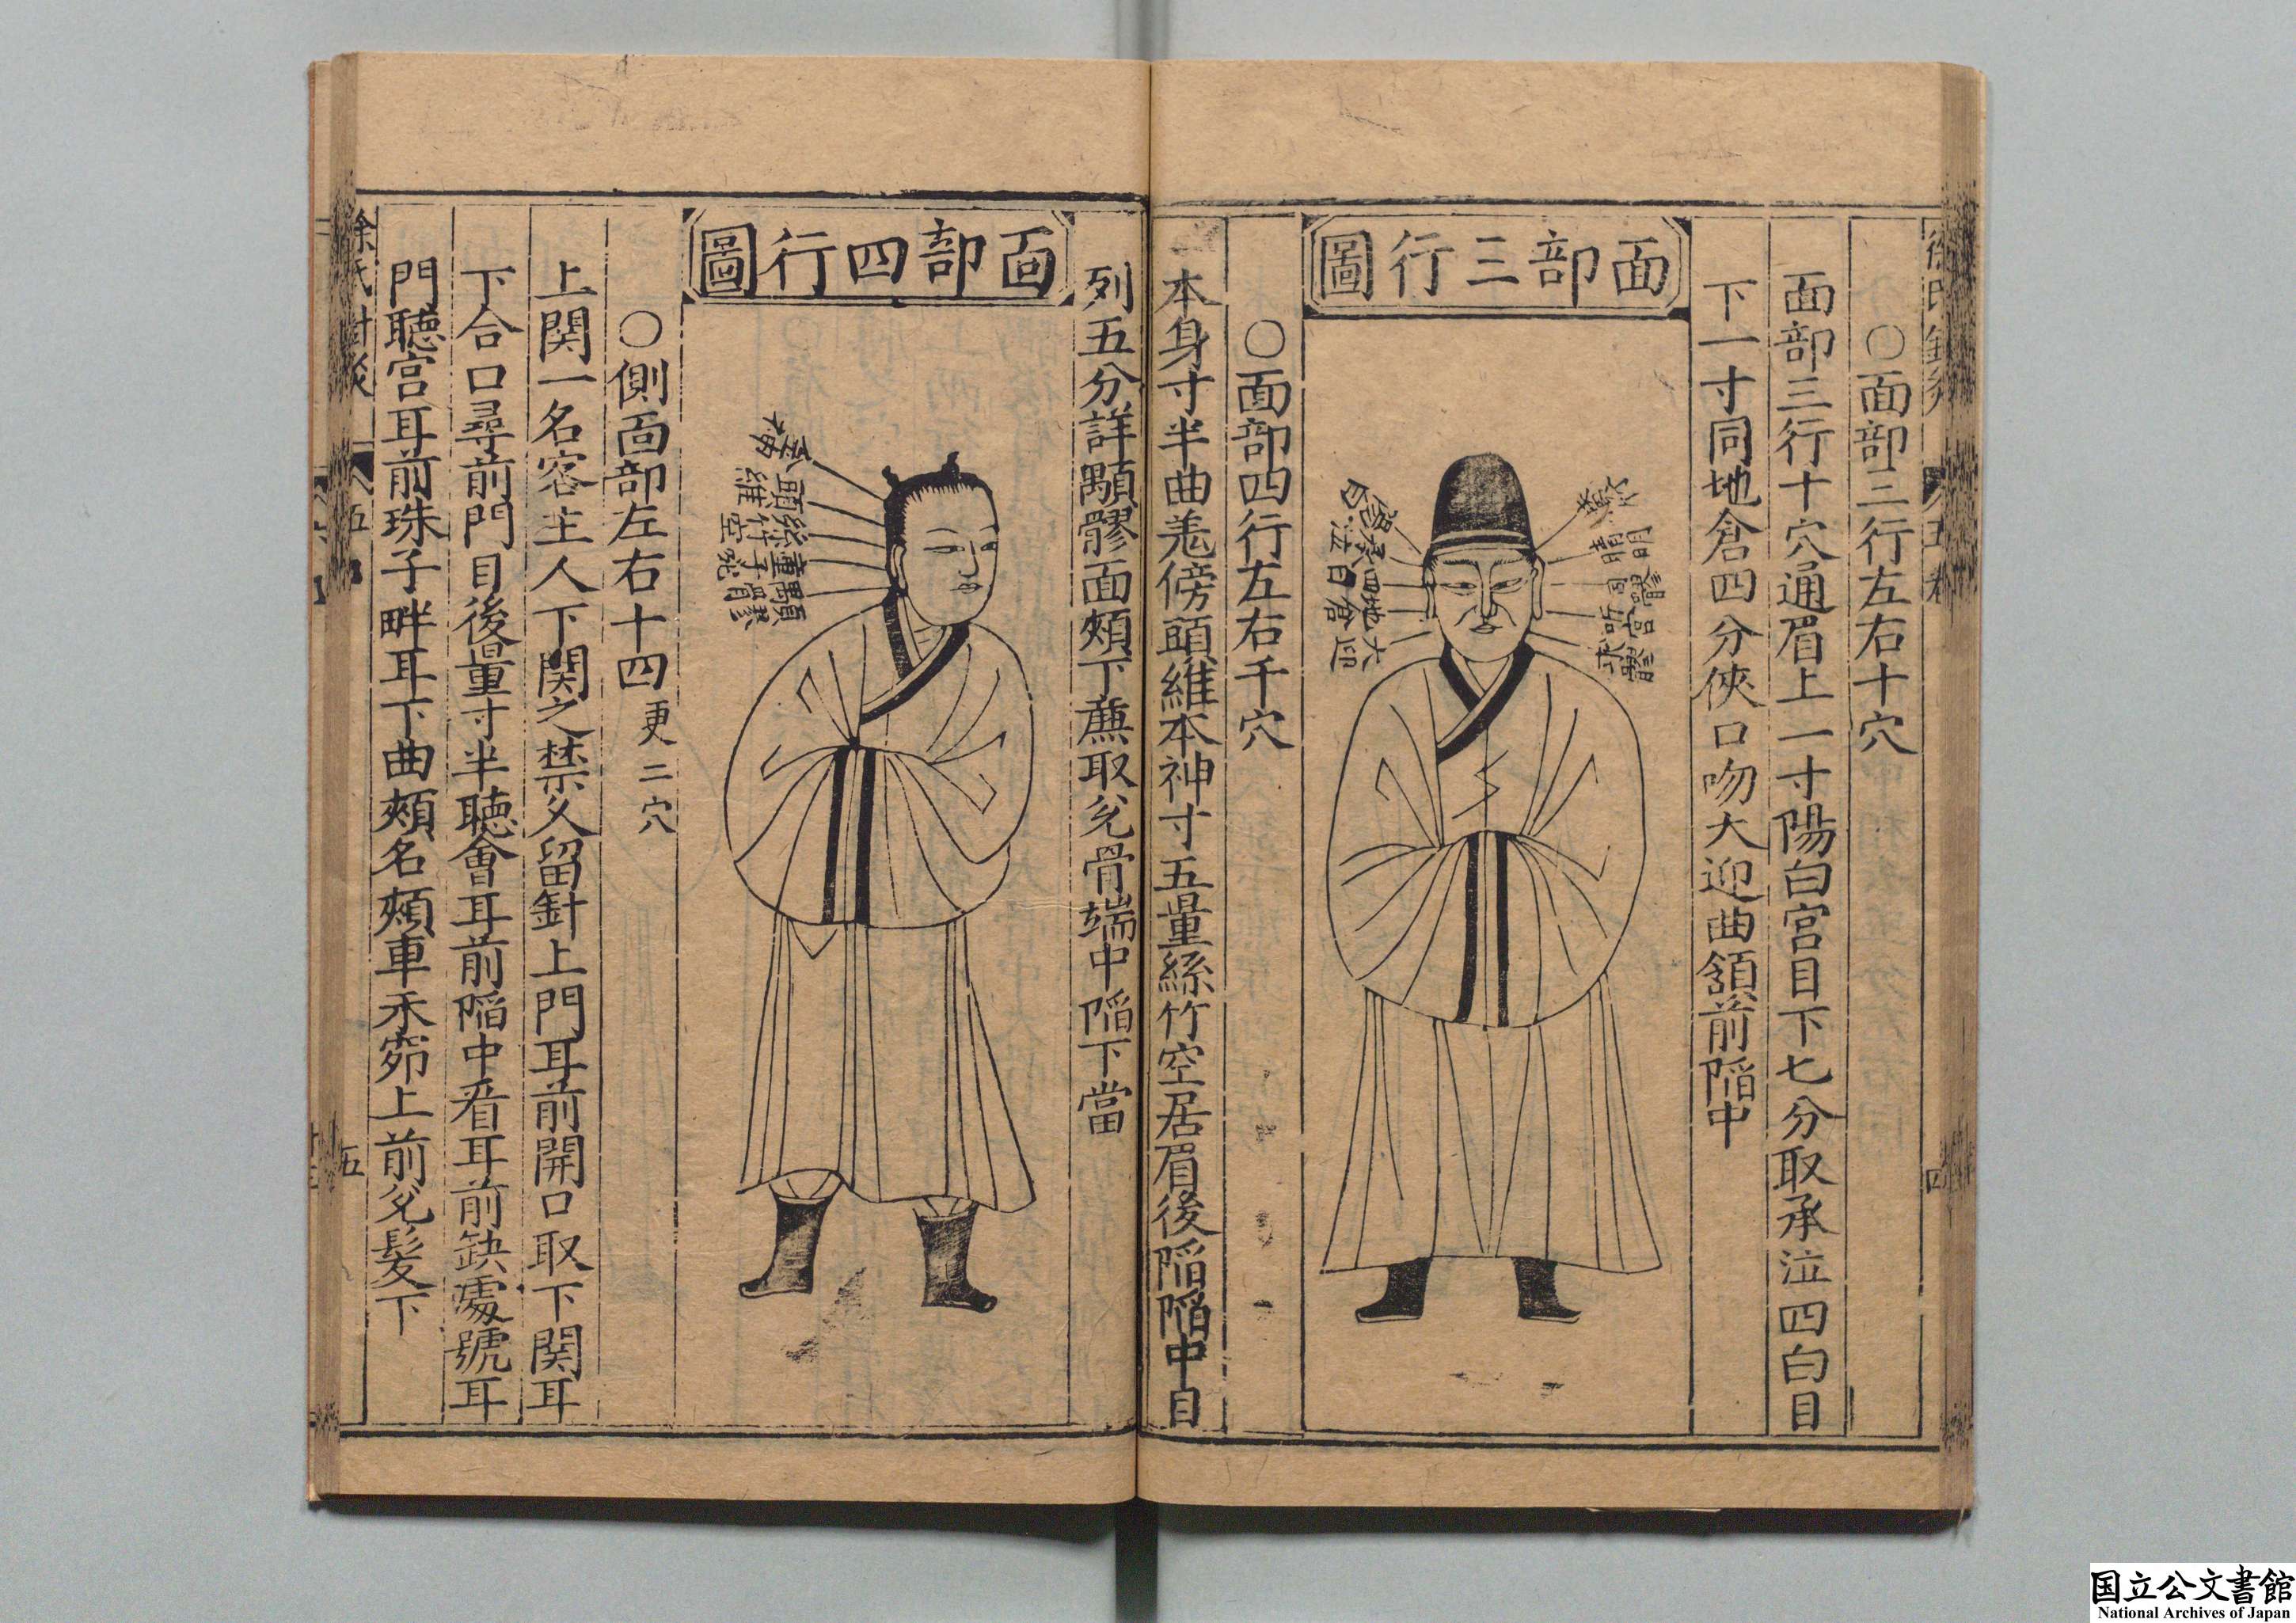 ○面部三行左右十穴
面部三行十穴通眉上一寸陽白宮目下七分取承泣四白目
下一寸同地倉四分俠口吻大迎曲頷前陷中
面部三行圖
○面部四行左右千穴
本身寸半曲差傍頭維本神寸五量絲竹空居眉後陷陷中目
列五分詳顴髎面頰下蕪取兌骨端中陷下當
面部四行圖
頭維
絲竹空
○側面部左右十四更二穴
上関一名客主人下関之禁久留針上門耳前開口取下関耳
下合口尋前門目後量寸半聴會耳前陷中看耳前缺處號耳
門聴宮耳前珠子畔耳下曲頰名頰車禾窌上前兌髮下
五
国立公文書館
National Archives of Japan